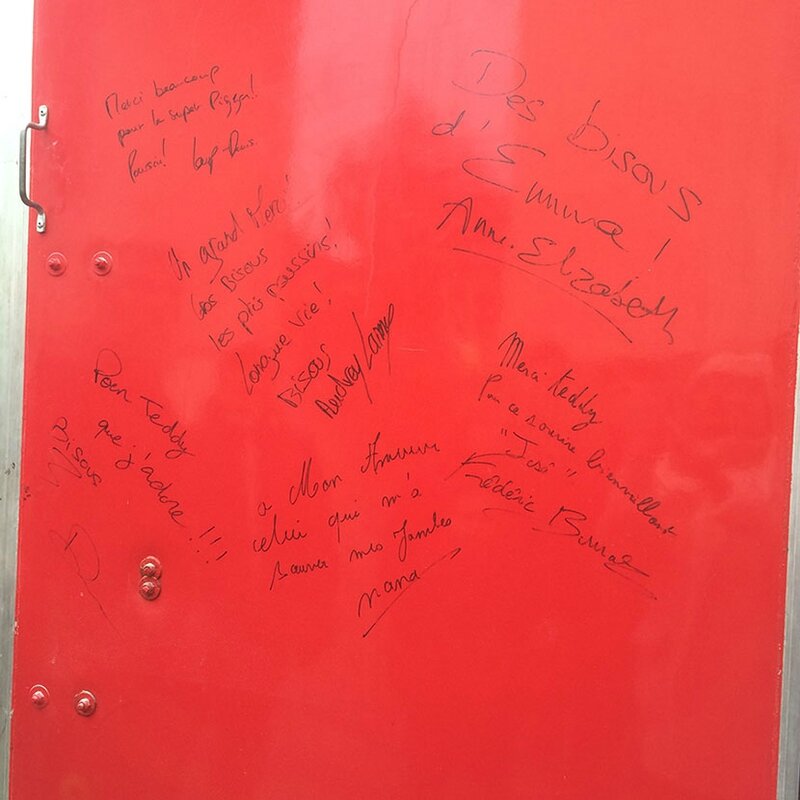 Merci beaucoup
pour la super Pizza!!
Des bisous
d'Emma!
Anne. Elizabeth
Un grand Merci!
Gros Bisous
les plus poussins!
Longue vie!
Bisous
Audrey Lamy
Merci teddy
Pour ce sourire bienveillant
"José"
Frédéric
Pour Teddy
que j'adore !!!
Bisous
a Mon Amour
celui qui m'a
sauver mes jambes
nana